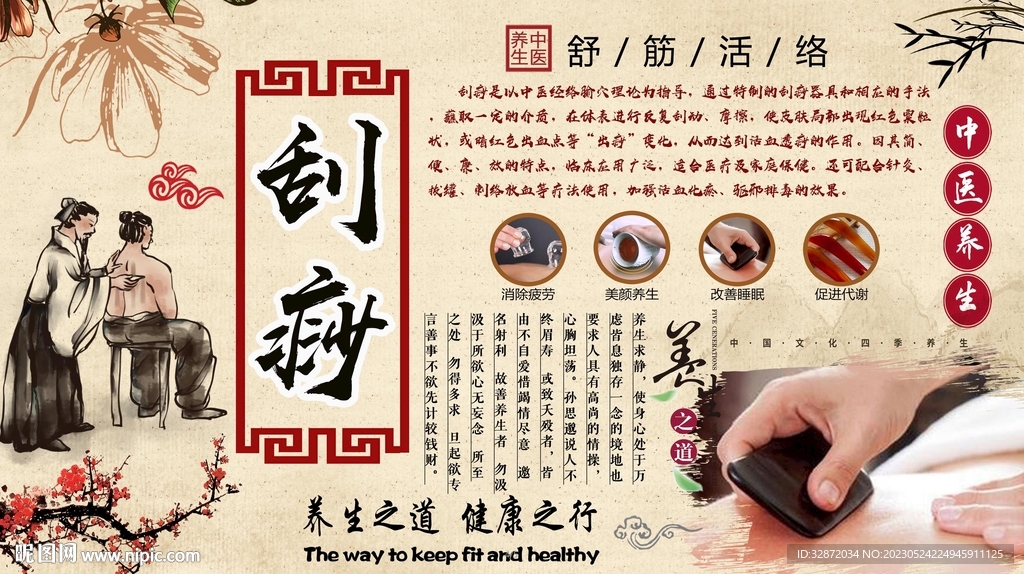 中医
养生
舒/筋/活/络
刮痧
刮痧是以中医经络腧穴理论为指导，通过特制的刮痧器具和相应的手法
，蘸取一定的介质，在体表进行反复刮动、摩擦，使皮肤局部出现红色粟粒
状，或暗红色出血点等“出痧”变化，从而达到活血透痧的作用。因其简、
便、廉、效的特点，临床应用广泛，适合医疗及家庭保健。还可配合针灸、
拔罐、刺络放血等疗法使用，加强活血化瘀、驱邪排毒的效果。
中
医
养
生
消除疲劳
美颜养生
改善睡眠
促进代谢
养生求静，使身心处于万
虑皆息独存一念的境地也
要求人具有高尚的情操，
心胸坦荡。孙思邈说人不
终眉寿　或致夭殁者，皆
由不自爱惜竭情尽意　邀
名射利　故善养生者　勿汲
汲于所欲心无妄念　所至
之处　勿得多求　旦起欲专
言善事不欲先计较钱财。
养生
之道
FIVE GENERATIONS
中国文化四季养生
养生之道 健康之行
The way to keep fit and healthy
昵图网 www.nipic.com
ID:32872034 NO:20230524224945911125